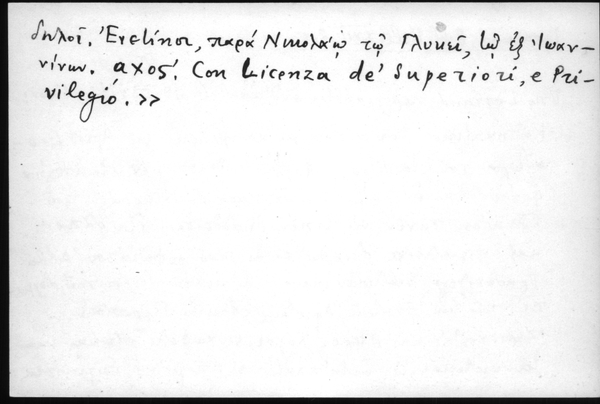 δηλοῖ. Ἐνετίησι, παρὰ Νικολάῳ τῷ Γλυκεῖ, τῷ ἐξ Ἰωαν-
νίνων. αχοζ΄. Con Licenza de' Superiori, e Pri-
vilegió. >>